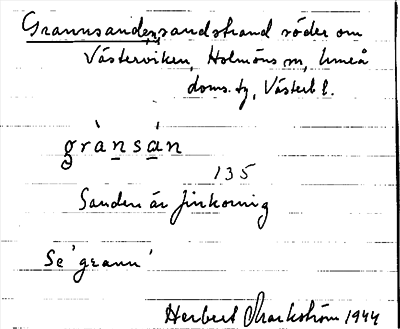 Grannsanden, sandstrand söder om
Västerviken, Holmöns sn, Umeå
doms. tg, Västerb l.
grànsán
135
Sanden är finkornig
Se 'grann'
Herbert Markström 1944